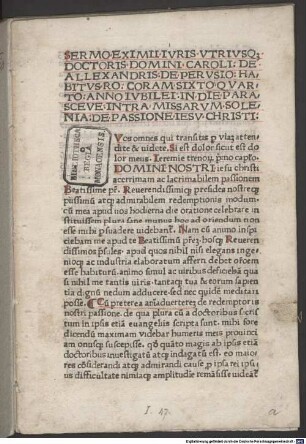 SERMO EXIMII IVRIS VTRIVSQ3
DOCTORIS DOMINI CAROLI DE
ALLEXANDRIS DE PERVSIO HA
BITVS RO CORAM SIXTO QVAR
TO ANNO IVBILEI IN DIE PARA
SCEVE INTRA MISSARVM SOLE
NIA DE PASSIONE IESV CHRISTI
Vos omnes qui transitis p viaʒ atten
dite & uidete. Si est dolor sicut est do
lor meus. Ieremie trenoʒ. pmo capto
DOMINI NOSTRI iesu christi
acerrimam ac lacrimabilem passionem
Beatissime pr̄. Reuerendissimiqʒ presides nostreqʒ
piissimā atqʒ admirabilem redemptionis modum
cū mea apud uos hodierna die oratione celebrare in
stituissem plura sane munus hoc ad oriendum non
esse mihi psuadere uidebant. Nam cū animo inspi
ciebam me apud te Beatissime
dissimos apud quos nihil nisi elegans ingeni
osqʒ ac industria elaboratum afferri debet orcem
esse habiturū. animo simul ac uiribus defuisse qua
si nihil me tantis uiris. tantaqʒ tua & eorum sapien
tia dignū nedum adducere sed nec quidē meditari
posse. Cū preterea aīaduerterē de redemptoris
nostri passione. de qua plura cū a doctoribus & cris
tum in ipsis etiā euangelis scripta sunt. mihi fore
dicendū maximam uidebar humeris meis prouinci
am onusqʒ suscepisse. qd quāto magis ab ipsis etiā
doctoribus inuestigatū atqʒ indagatū est. eo maior
res cōsiderandi atqʒ admirandi causa
ius difficultate nimiaqʒ amplitudine remāsisse uideat
I. 47.
a